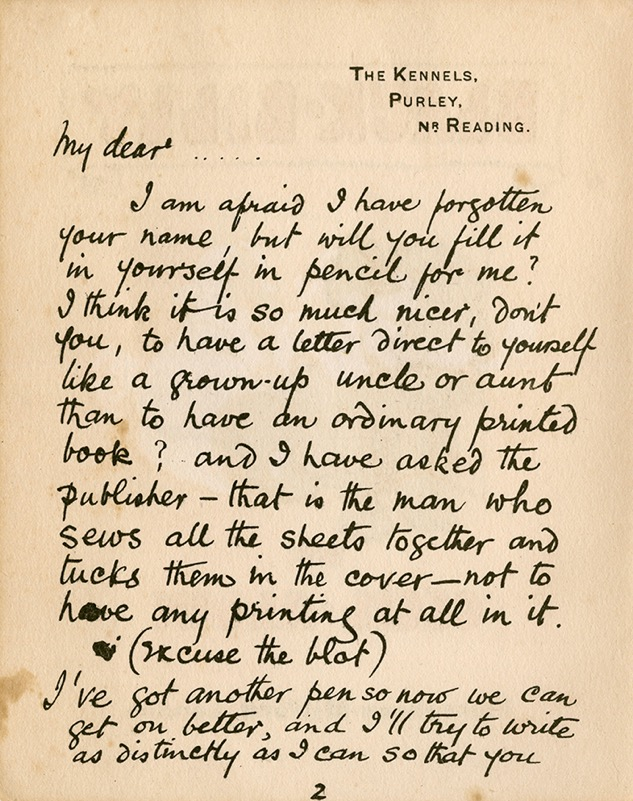 THE KENNELS,
PURLEY,
NR READING.
My dear ......
I am afraid I have forgotten
your name, but will you fill it
in yourself in pencil for me?
I think it is so much nicer, don't
you, to have a letter direct to yourself
like a grown-up uncle or aunt
than to have an ordinary printed
book? and I have asked the
publisher – that is the man who
sews all the sheets together and
tucks them in the cover – not to
have any printing at all in it.
(Excuse the blot)
I've got another pen so now we can
get on better, and I'll try to write
as distinctly as I can so that you
2